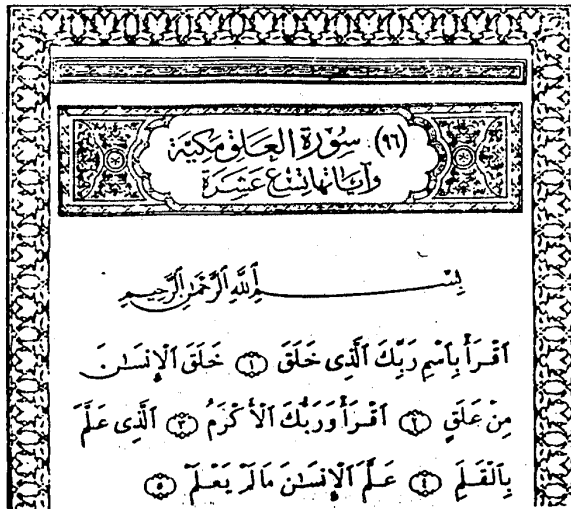 (٩٦) سُورَة العَلَق مَكيَّة
وَآيَاتُهَا تِسْع عَشَرَة
بِسْمِ ٱللَّهِ ٱلرَّحْمَٰنِ ٱلرَّحِيمِ
ٱقْرَأْ بِٱسْمِ رَبِّكَ ٱلَّذِى خَلَقَ ١ خَلَقَ ٱلْإِنسَٰنَ
مِنْ عَلَقٍ ٢ ٱقْرَأْ وَرَبُّكَ ٱلْأَكْرَمُ ٣ ٱلَّذِى عَلَّمَ
بِٱلْقَلَمِ ٤ عَلَّمَ ٱلْإِنسَٰنَ مَا لَمْ يَعْلَمْ ٥